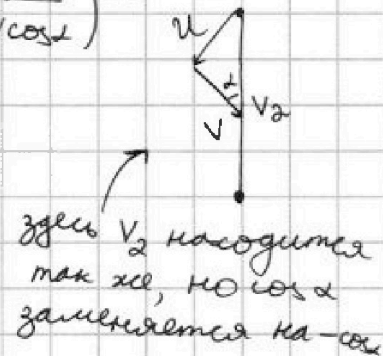 √cosα)
u
α
V₂
V
здесь V₂ находится
так же, но cosα
заменяется на -cos